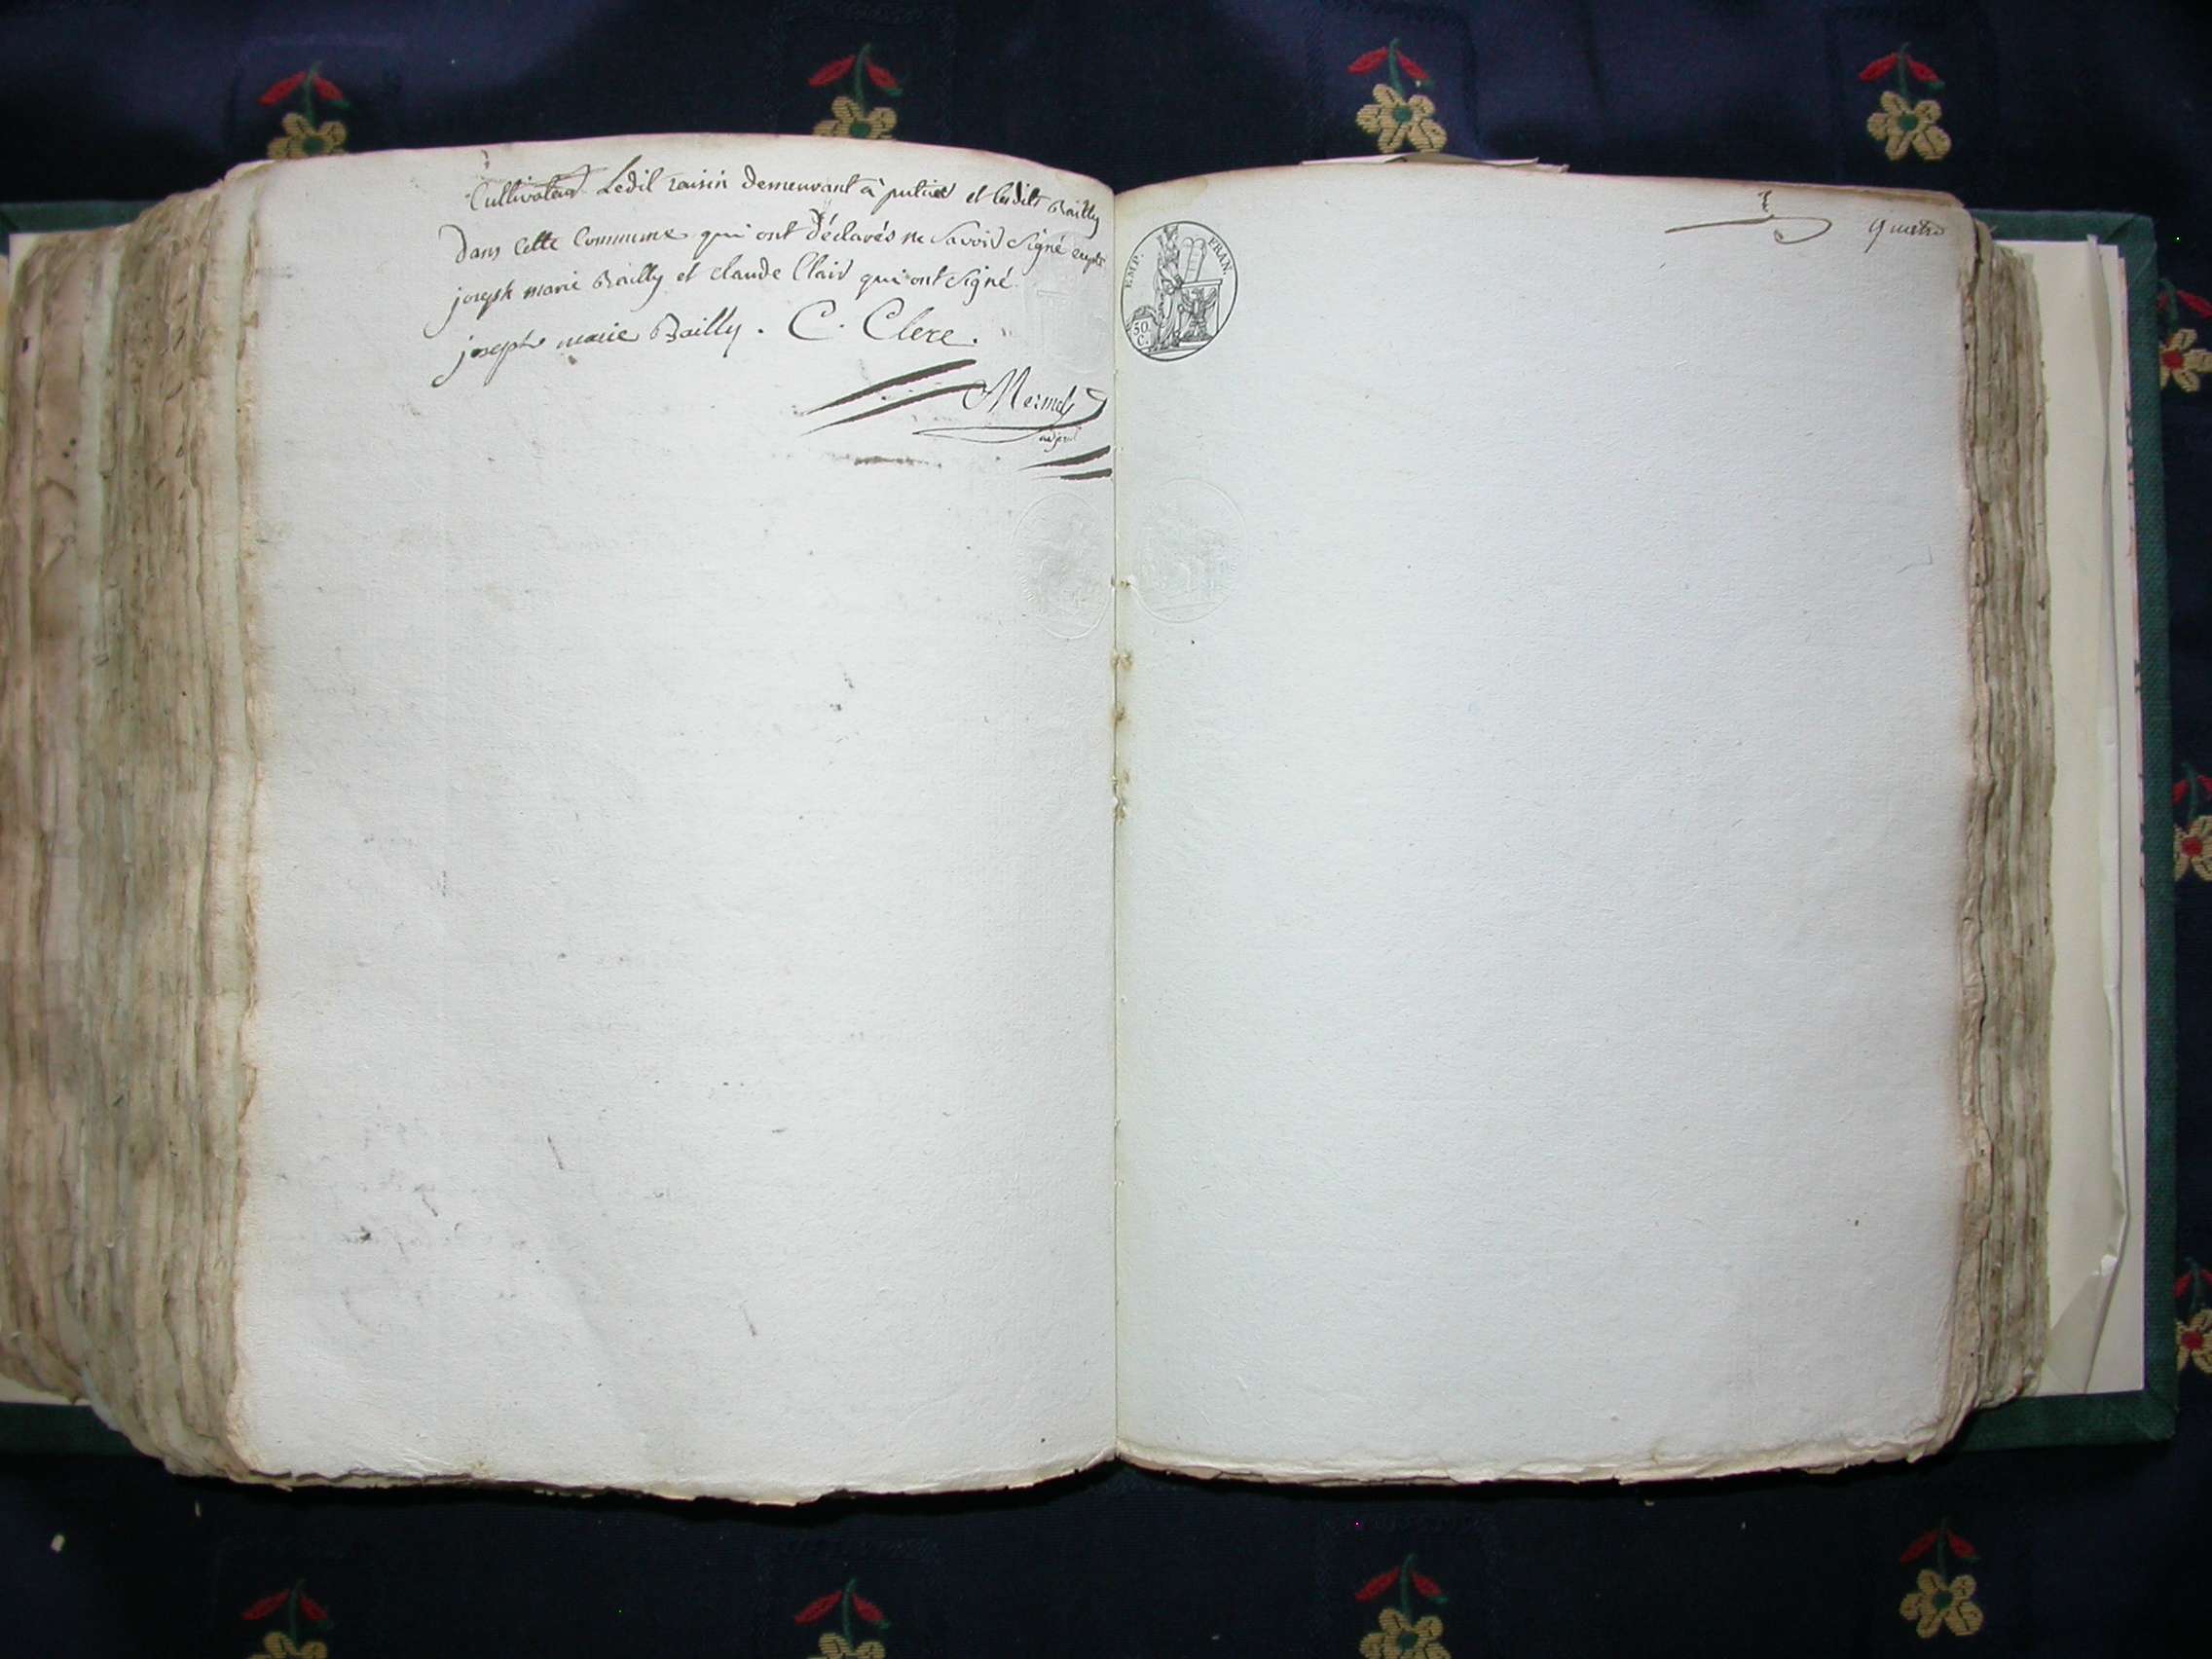 Cultivateur Ledit raisin demeurant à et lesdits Bailly
Dans Cette Commune qui ont Déclarés ne Savoir Signé
joseph marie Bailly et claude Clair qui ont Signé.
joseph marie Bailly . C. Clerc .
Mermet
adjoint
EMP. FRAN.
50.
C.
quatre